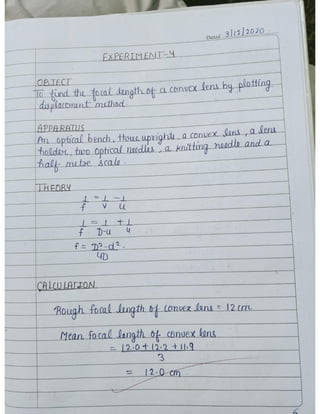 Date 3/12/2020
EXPERIMENT-4
OBJECT
To find the focal length of a convex lens by plotting
displacement method.
APPARATUS
An optical bench, three uprights, a convex lens, a lens
holder, two optical needles, a knitting needle and a
half metre scale.
THEORY
1/f = 1/v - 1/u
1/f = 1/D-u + 1/u
f = D²-d²/4D
CALCULATION
Rough focal length of convex lens = 12 cm
Mean focal length of convex lens
= 12.0 + 12.2 + 11.9
3
= 12.0 cm